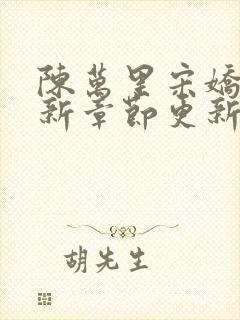 陳萬里宋嬌
新章節更新
胡先生